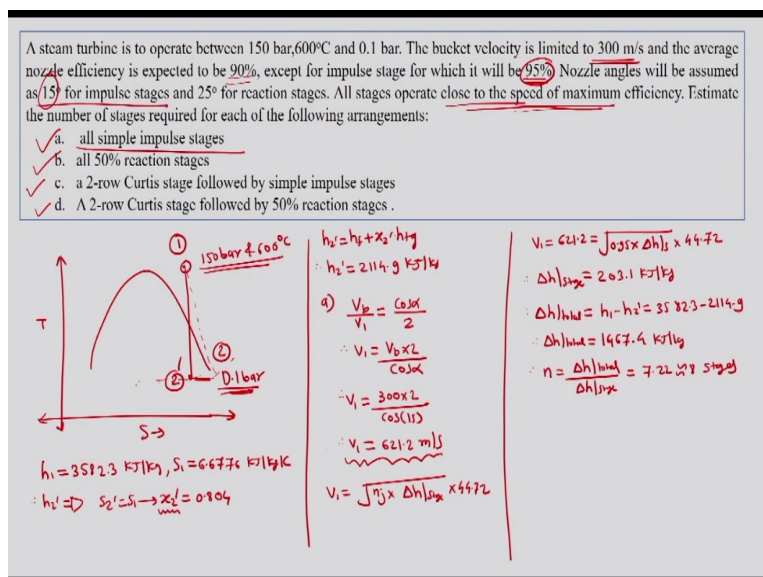 A steam turbine is to operate between 150 bar,600°C and 0.1 bar. The bucket velocity is limited to 300 m/s and the average
nozzle efficiency is expected to be 90%, except for impulse stage for which it will be 95% Nozzle angles will be assumed
as 15° for impulse stages and 25° for reaction stages. All stages operate close to the speed of maximum efficiency. Estimate
the number of stages required for each of the following arrangements:
a. all simple impulse stages
b. all 50% reaction stages
c. a 2-row Curtis stage followed by simple impulse stages
d. A 2-row Curtis stage followed by 50% reaction stages .
1
150bar & 600°C
T
2'
2
0.1bar
S→
h₁=3582.3 KJ/Kg, S₁=6.6776 KJ/kgK
∴ h₂'=> S₂'=S₁→x₂'=0.804
h₂'=hf+x₂'hfg
∴ h₂'=2114.9 KJ/kg
a) Vb/V₁ = Cosα/2
∴ V₁ = Vb×2/Cosα
∴ V₁ = 300×2/Cos(15)
∴ V₁ = 621.2 m/s
V₁ = √ηj × Δh)stage ×44.72
V₁ = 621.2 = √0.95×Δh)s × 44.72
∴ Δh)stage = 203.1 KJ/kg
Δh)total = h₁-h₂' = 3582.3-2114.9
∴ Δh)total = 1467.4 KJ/kg
∴ n = Δh)total/Δh)stage = 7.22 ≈ 8 stages